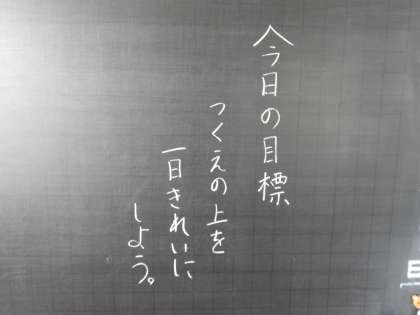 今日の目標
つくえの上を
一日きれいに
しよう。